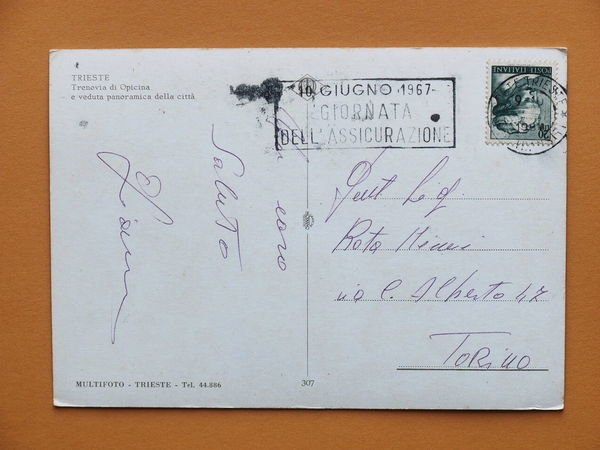 TRIESTE
Trenovia di Opicina
e veduta panoramica della città
10 GIUGNO 1967-
GIORNATA
DELL'ASSICURAZIONE
POSTE ITALIANE
TRIESTE
caro
Saluto
Gent
Rota
via C. Alberto 47
TORINO
MULTIFOTO - TRIESTE - Tel. 44.886
307